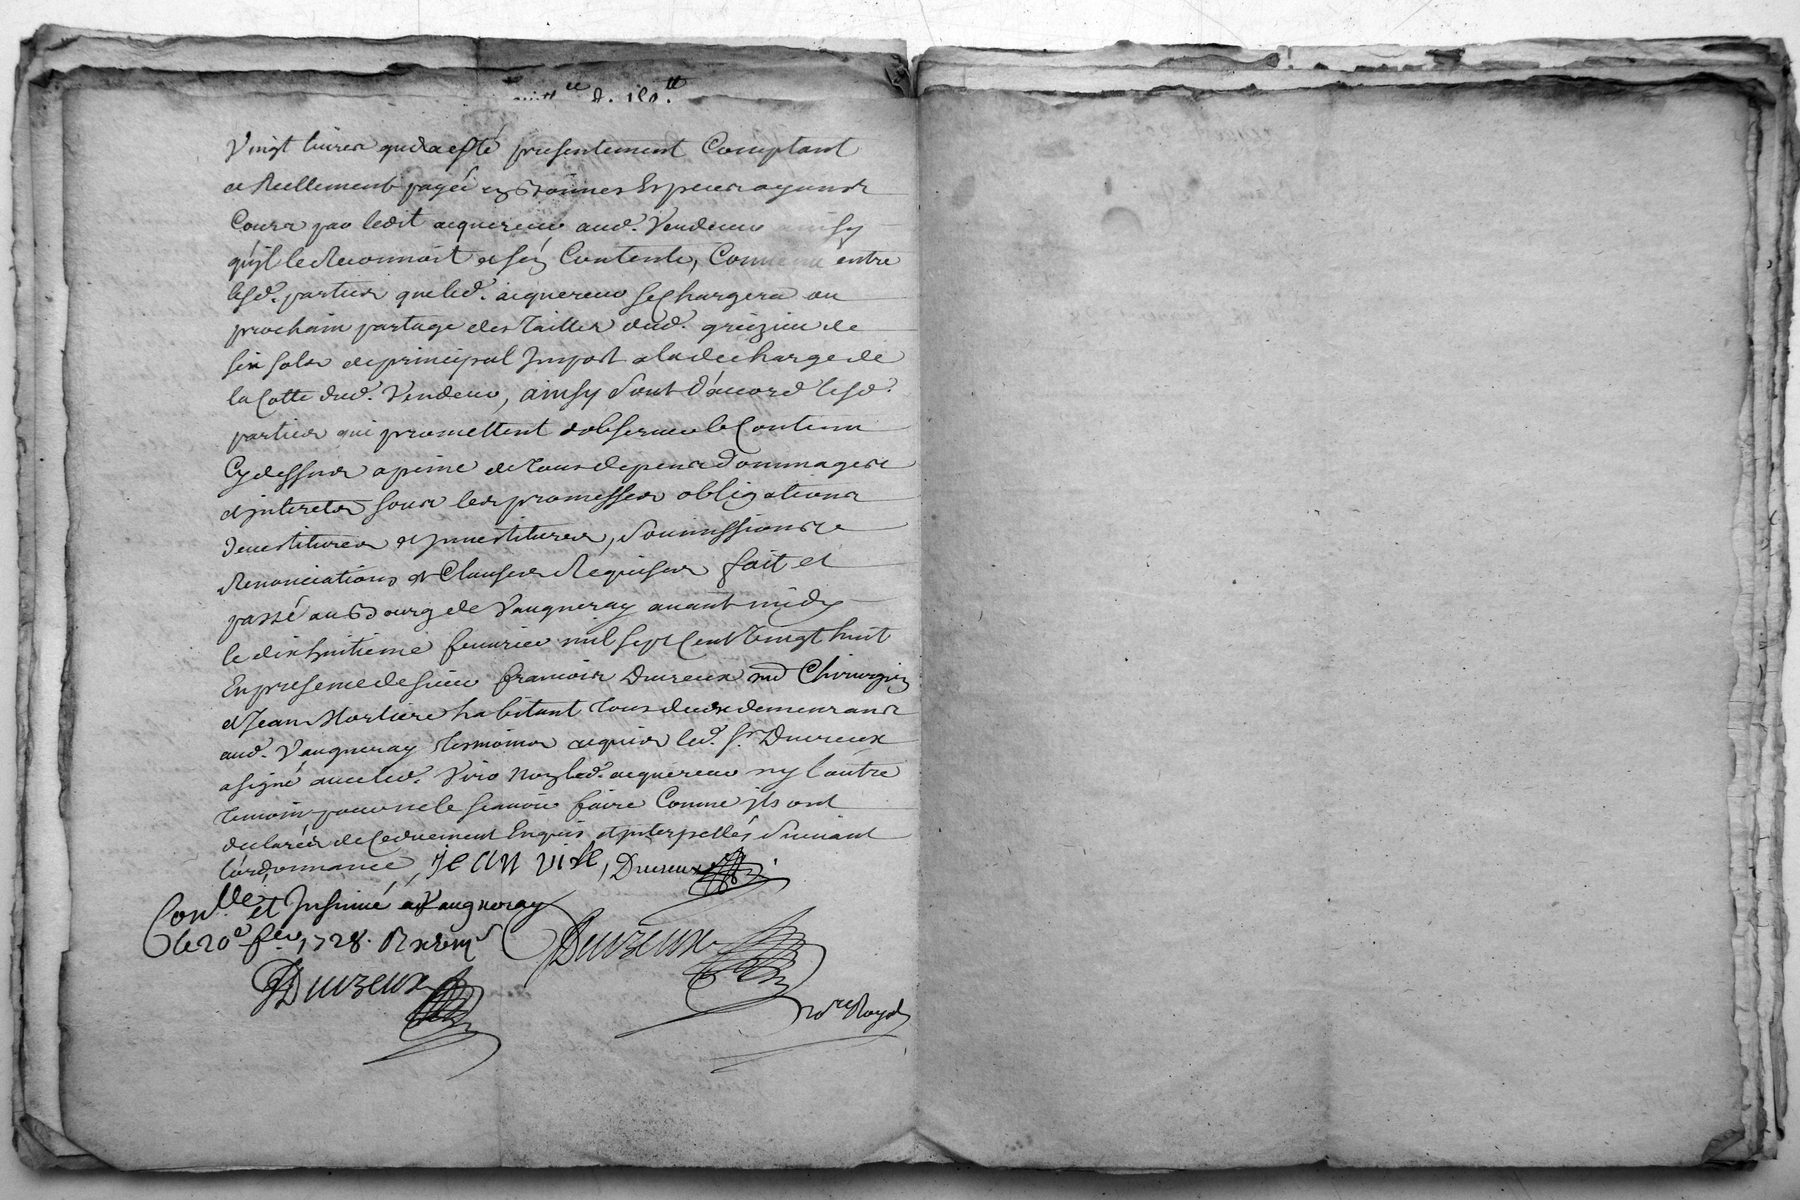 Vingt livres qui a esté presentement Comptant
et Reellement payéé en Bonnes Especes ayants
Cours par ledit acquereur aud. Vendeur ainsy
qu'jl le Reconnoit et s'en Contente, Convenu entre
lesd. parties que led. acquereur se Chargera au
prochain partage des Tailles dud. grèzieu de
six sols de principal Jmpost a la decharge de
la Cotte dud. Vendeur, ainsy sont D'accord lesd.
parties qui promettent d'observer le Contenu
Cydessus a peine de tous depens Dommages et
et jnterets sous les promesses obligations
Devestitures et jnvestitures, Soumissions et
Renonciations et Clauses Requises fait et
passé au Bourg de Vaugneray avant midy
le dixhuitieme fevrier mil sept Cent Vingt huit
En presence de sieur francois Duvreux md Chirurgien
et Jean Mortiere habitant tous deux demeurants
aud. Vaugneray Tesmoins requis led. sr. Duvreux
a signé avec led. Viro non led. acquereur ny l'autre
temoin pour ne le scavoir faire Comme jls ont
declarés de Ce duement Enquis et jnterpellés Suivant
l'ordonnance, JEAN Viro, Duvreux
Conllé et Jnsinué a Vaugneray
le 20e fev. 1728. R
Duvreux
Duvreux
Nore Royal